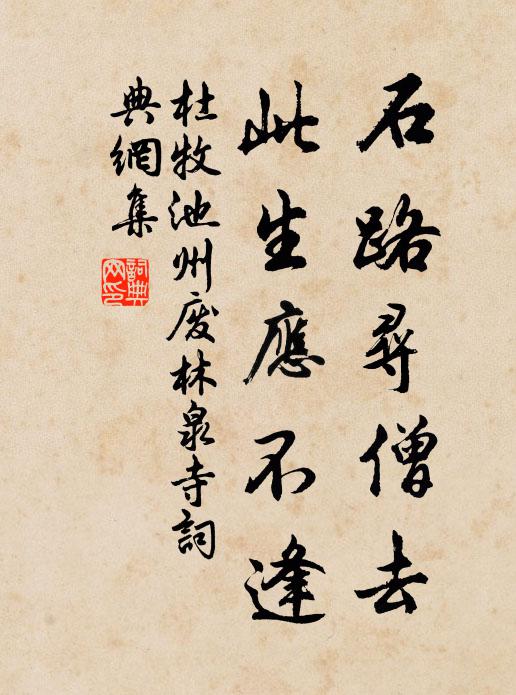 石路尋僧去
此生應不逢
杜牧池州廢林泉寺詞
典網集
詞典
网印